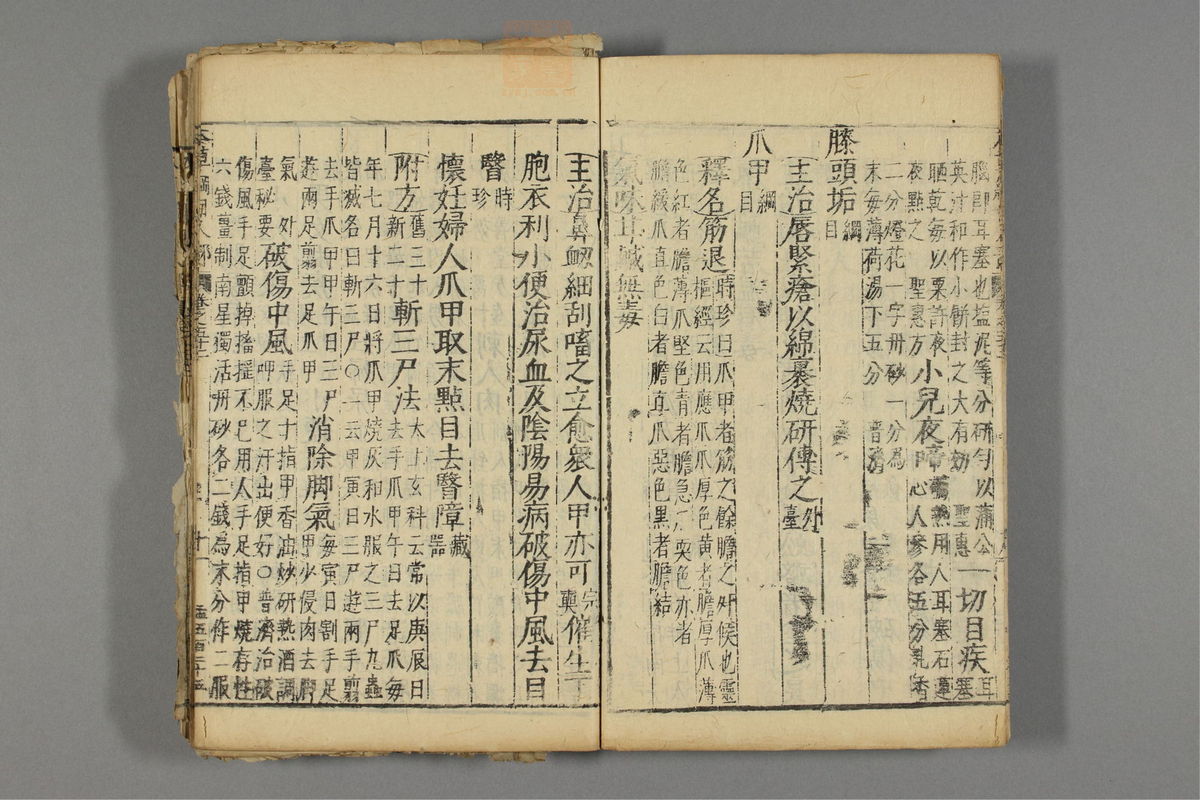 腦即耳塞也塩泥等分研勻以蒲公英汁和作小餅封之大有効聖惠一切目疾耳塞
晒乾每以粟許夜夜點之聖惠方小兒夜啼驚熱用人耳塞石蓮心人參各五分乳香
二分燈花一字丹砂一分為末每薄荷湯下五分普濟
膝頭垢綱目
主治唇緊瘡以綿裹燒研傅之外臺
爪甲綱目
釋名筋退時珍曰爪甲者筋之餘膽之外候也靈樞經云用應爪爪厚色黃者膽厚爪薄
色紅者膽薄爪堅色青者膽急爪耎色赤者膽緩爪直色白者膽直爪惡色黑者膽結
氣味甘鹹無毒
主治鼻衂細刮㗜之立愈衆人甲亦可宗奭催生下
胞衣利小便治尿血及陰陽易病破傷中風去目
瞖時珍
懷妊婦人爪甲取末點目去瞖障藏器
附方舊三新二十十斬三尸法太上玄科云常以庚辰日去手爪甲午日去足爪每
年七月十六日將爪甲燒灰和水服之三尸九蟲皆滅名曰斬三尸○一云甲寅日三尸遊兩手翦
去手爪甲甲午日三尸遊兩足翦去足爪甲消除脚氣每寅日割手足甲少侵肉去脚
氣外臺秘要破傷中風手足十指甲香油炒研熱酒調呷服之汗出便好○普濟治破
傷風手足顫掉搐搦不已用人手足指甲燒存性六錢薑制南星獨活丹砂各二錢為末分作二服
本草綱目人部
卷之五十二